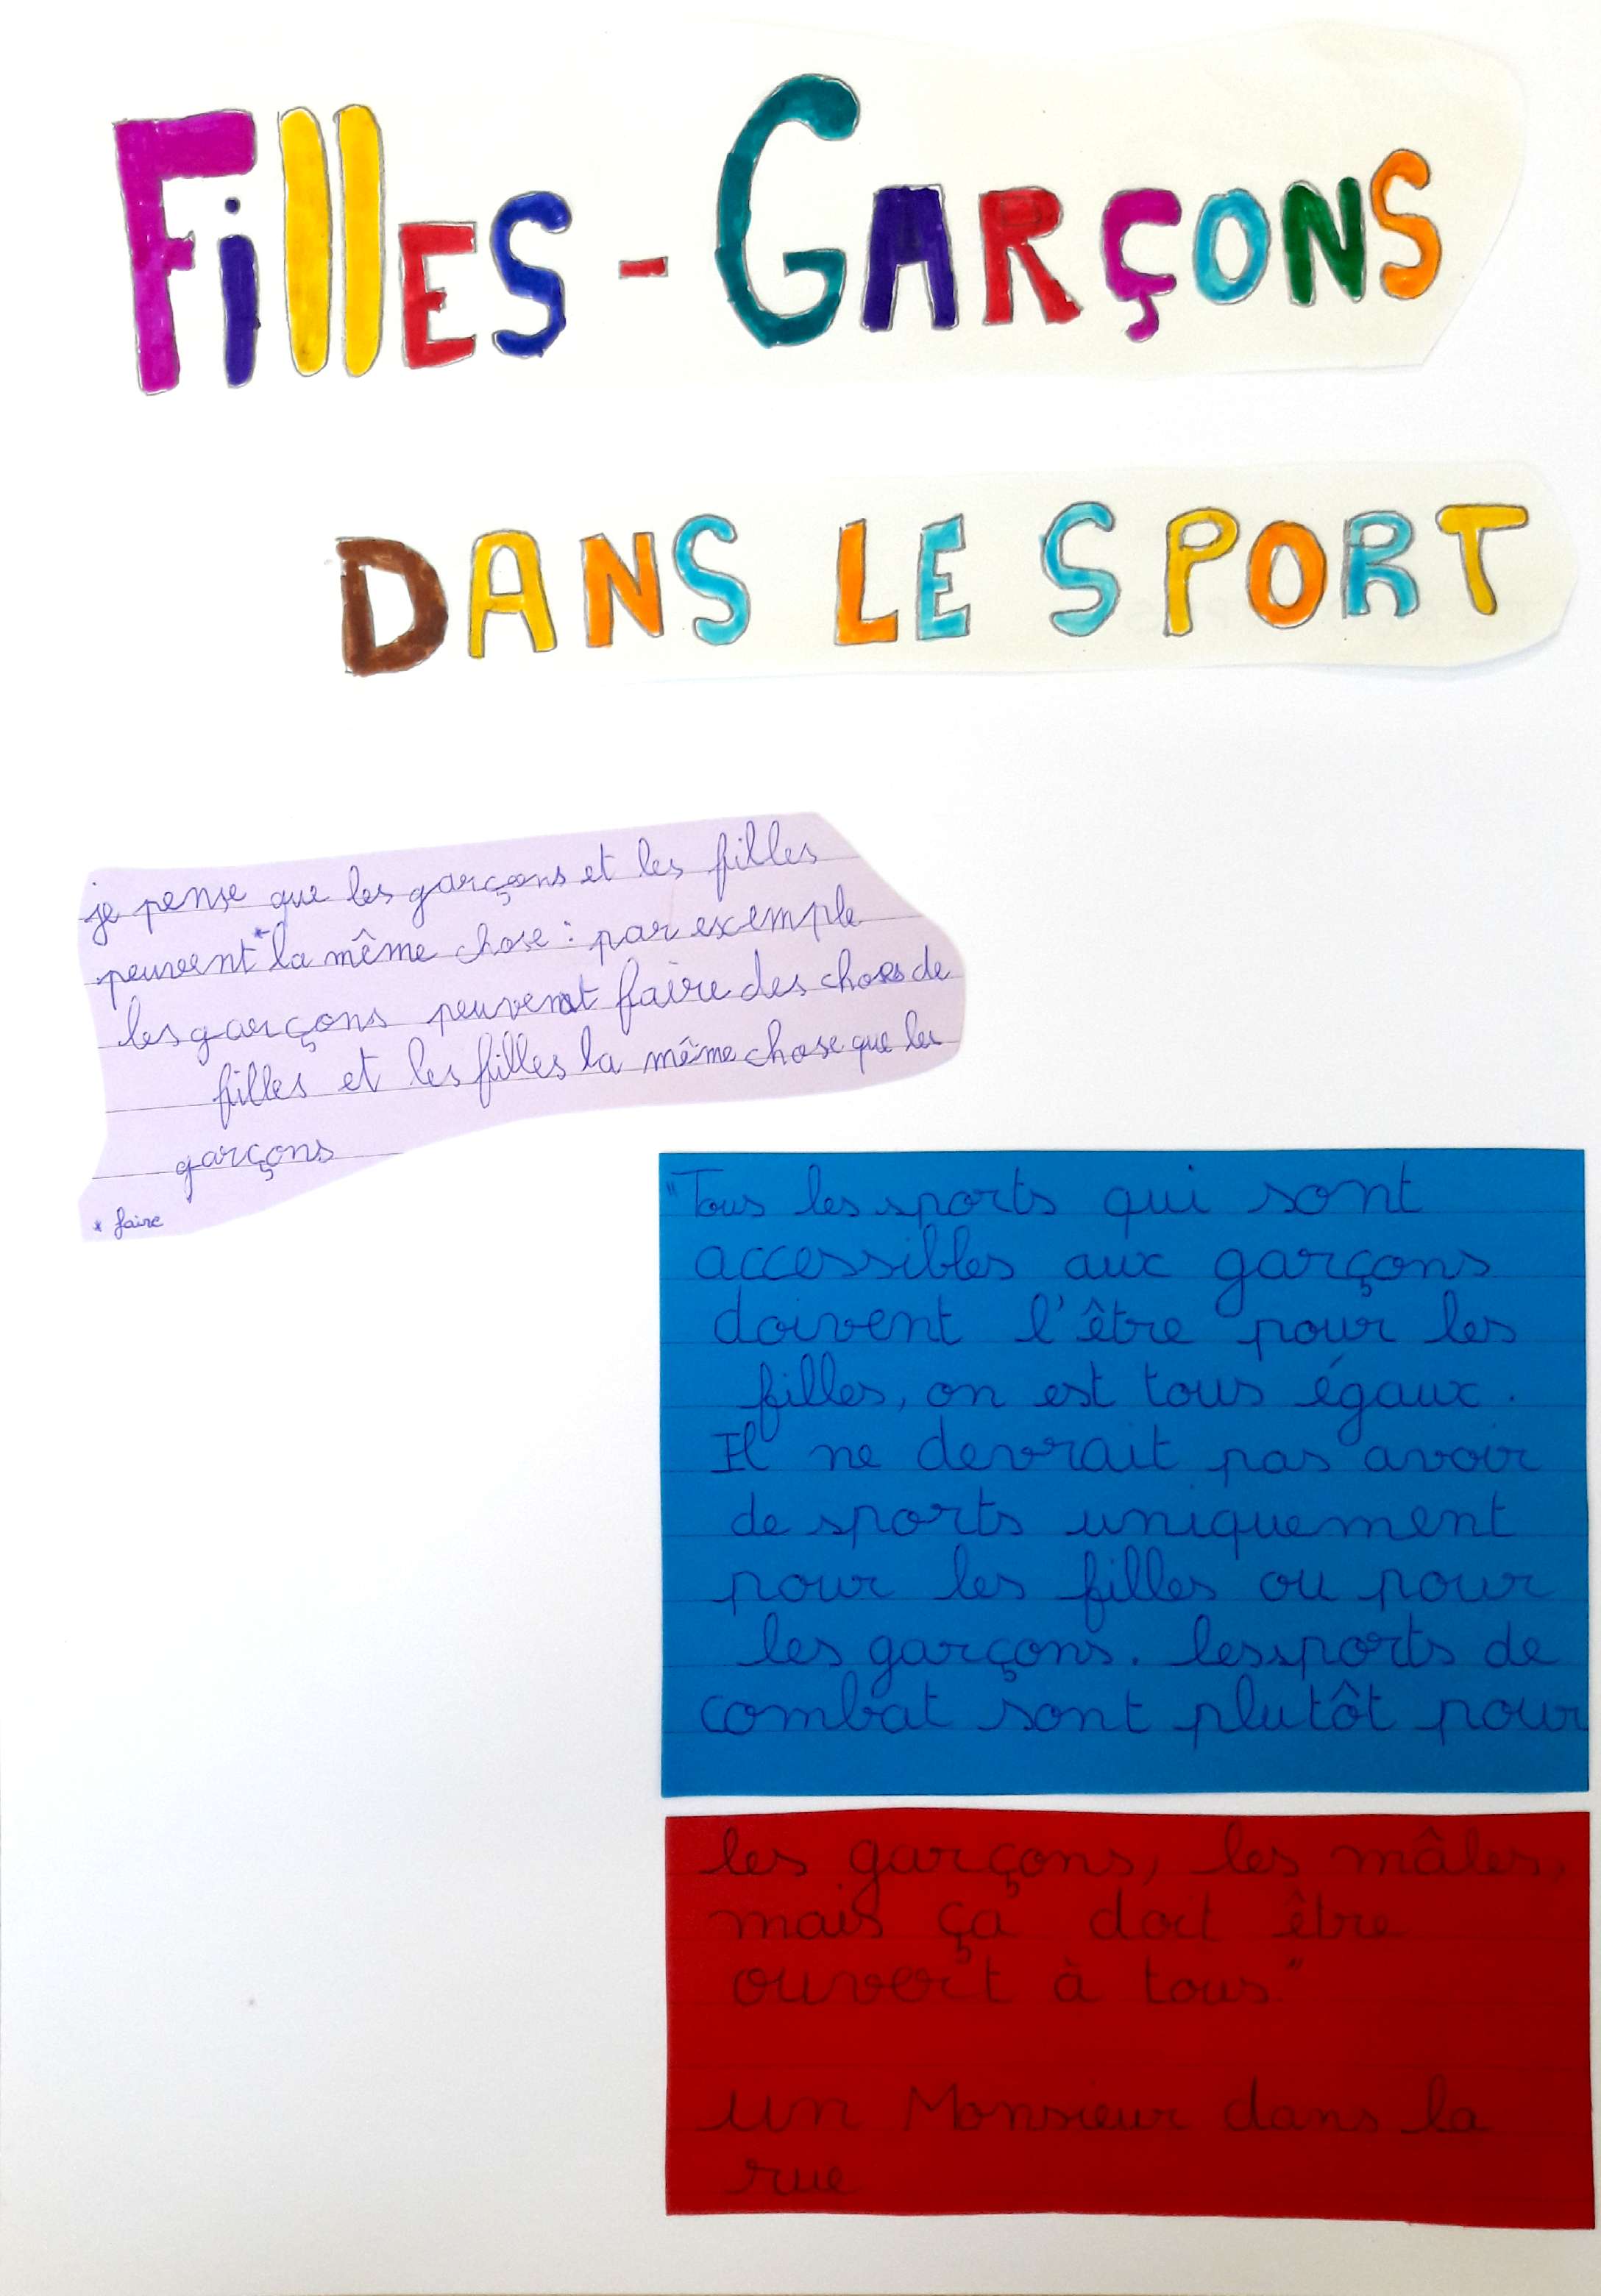 FillES - GARÇONS
DANS LE SPORT
je pense que les garçons et les filles
peuvent * la même chose : par exemple
les garçons peuvent faire des choses de
filles et les filles la même chose que les
garçons
* faire
"Tous les sports qui sont
accessibles aux garçons
doivent l'être pour les
filles, on est tous égaux.
Il ne devrait pas avoir
de sports uniquement
pour les filles ou pour
les garçons. les sports de
combat sont plutôt pour
les garçons, les mâles,
mais ça doit être
ouvert à tous"
un Monsieur dans la
rue